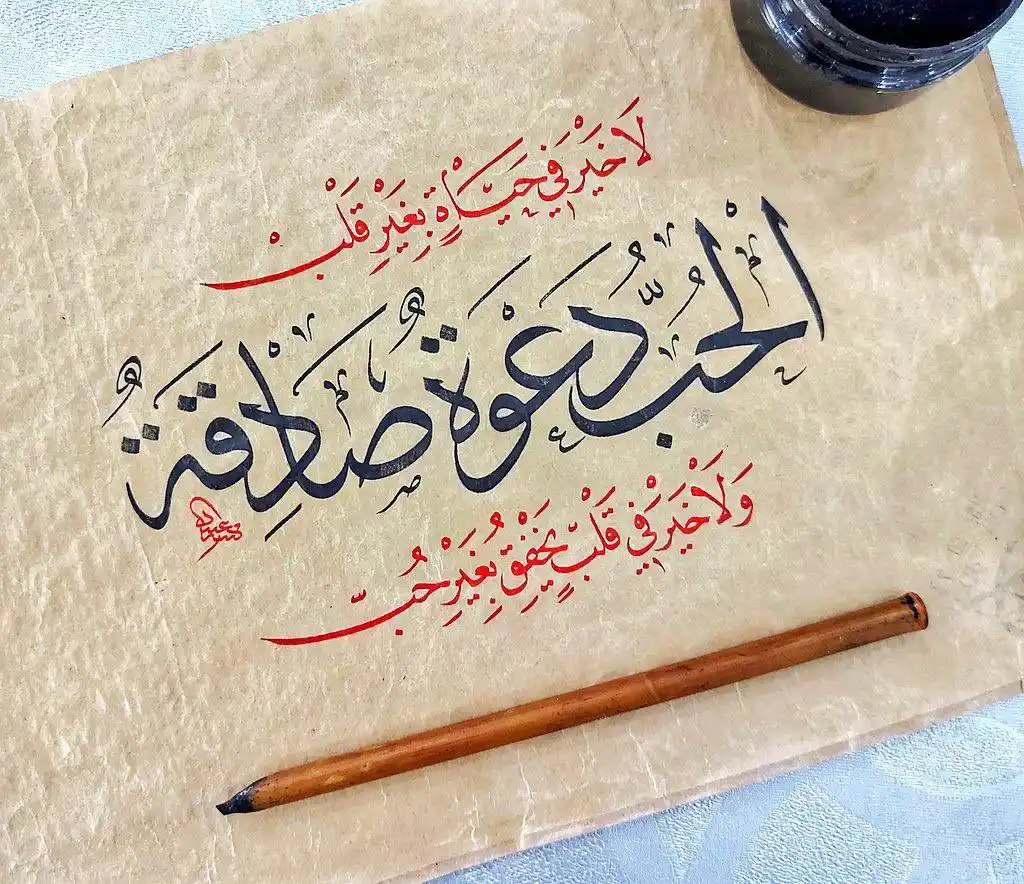 لَا خَيْرَ فِي حَيَاةٍ بِغَيْرِ قَلْبْ
الْحُبُّ دَعْوَةٌ صَادِقَةٌ
وَلَا خَيْرَ فِي قَلْبٍ يَخْفِقُ بِغَيْرِ حُبّ